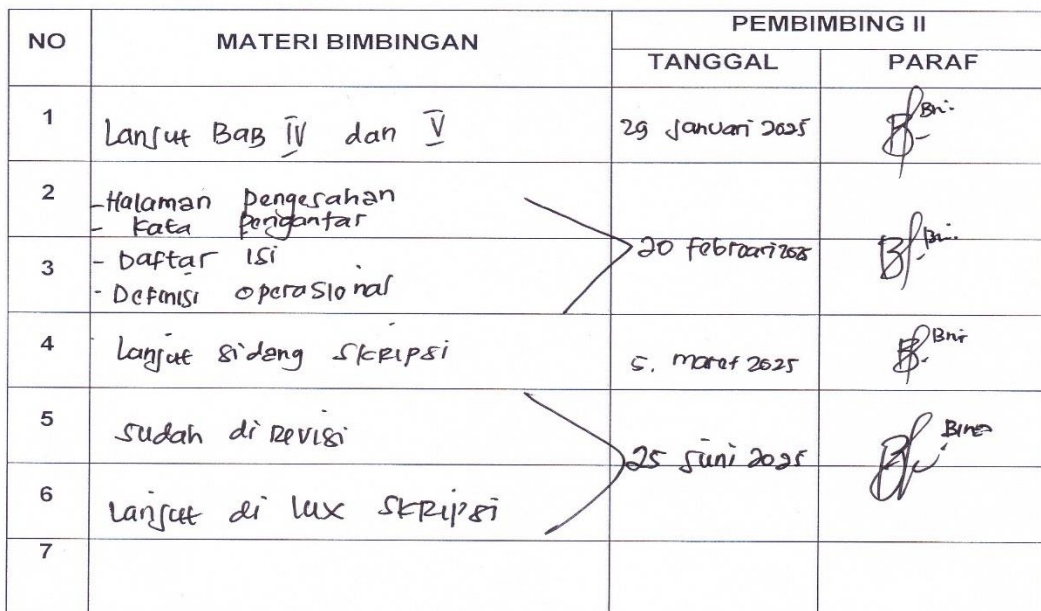 NO MATERI BIMBINGAN PEMBIMBING II
TANGGAL PARAF
1 Lanjut BAB IV dan V 29 Januari 2025 Bni.
2 - Halaman Pengesahan
- Kata Pengantar
20 februari 2025 Bni.
3 - Daftar isi
- Definisi operasional
4 Lanjut sidang SKRIPSI 5. maret 2025 Bni
5 sudah di Revisi
25 Juni 2025
6 Lanjut di lux SKRIPSI
7